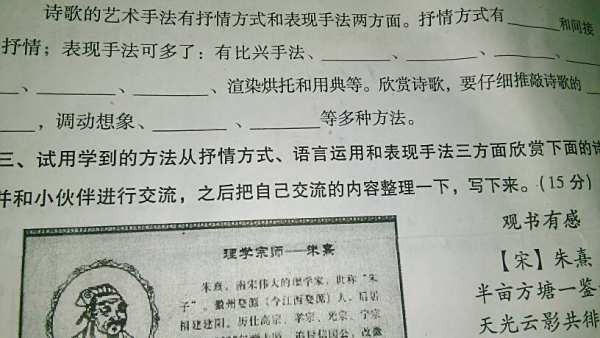 诗歌的艺术手法有抒情方式和表现手法两方面。抒情方式有______和间接
抒情；表现手法可多了：有比兴手法、______、______、______、
、______、______、渲染烘托和用典等。欣赏诗歌，要仔细推敲诗歌的
______，调动想象、______、______等多种方法。
三、试用学到的方法从抒情方式、语言运用和表现手法三方面欣赏下面的诗
并和小伙伴进行交流，之后把自己交流的内容整理一下，写下来。(15分)
理学宗师——朱熹
朱熹，南宋伟大的理学家，世称“朱
子”。徽州婺源（今江西婺源）人，后居
福建建阳。历仕高宗、孝宗、光宗、宁宗
追封信国公，改徽
观书有感
【宋】朱熹
半亩方塘一鉴
天光云影共徘